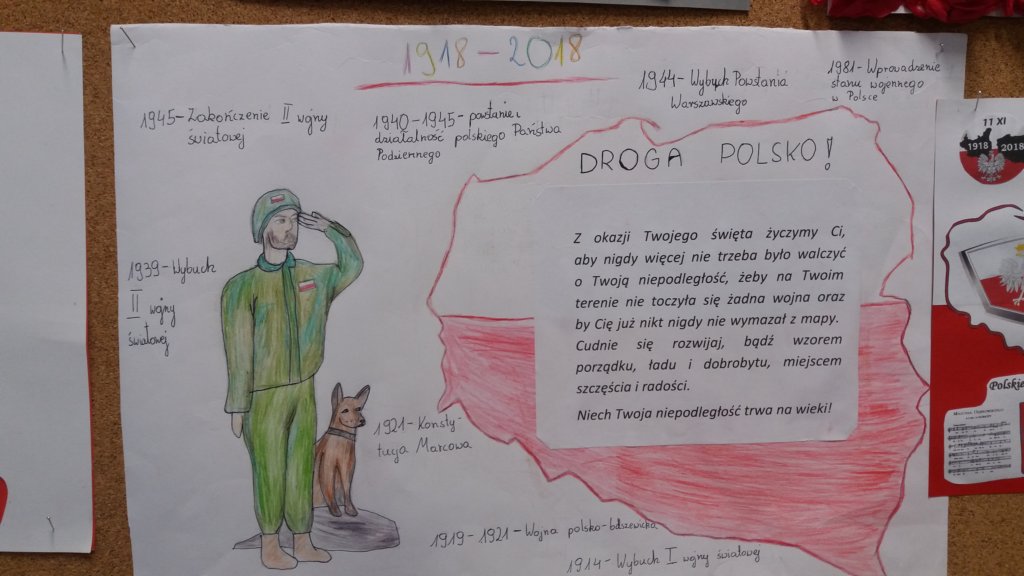 1918-2018
1945-Zakończenie II wojny
światowej
1940-1945-powstanie i
działalność polskiego Państwa
Podziemnego
1944-Wybuch Powstania
Warszawskiego
1981-Wprowadzenie
stanu wojennego
w Polsce
DROGA POLSKO!
Z okazji Twojego święta życzymy Ci,
aby nigdy więcej nie trzeba było walczyć
o Twoją niepodległość, żeby na Twoim
terenie nie toczyła się żadna wojna oraz
by Cię już nikt nigdy nie wymazał z mapy.
Cudnie się rozwijaj, bądź wzorem
porządku, ładu i dobrobytu, miejscem
szczęścia i radości.
Niech Twoja niepodległość trwa na wieki!
1939-Wybuch
II wojny
światowej
1921-Konsty-
tucja Marcowa
1919-1921-Wojna polsko-bolszewicka
1914-Wybuch I wojny światowej
11 XI
1918 2018
Polskie